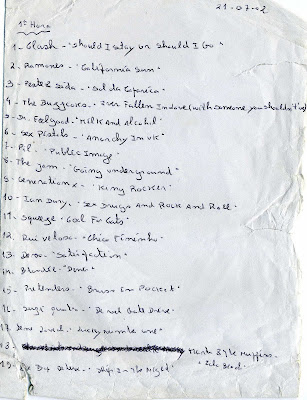 21-07-02
1ª Hora
1- Clash - "Should I stay or Should I Go"
2- Ramones - "California Sun"
3- Peste & Sida - "Sol da Caparica"
4- The Buzzcocks - Ever Fallen In Love (with someone you shouldn't
5- Dr. Feelgood - Milk And Alcohol
6- Sex Pistols - "Anarchy In UK"
7- Pil - "Public Image"
8- The Jam - "Going Underground"
9- Generation X - "King Rocker"
10- Ian Dury - "Sex Drugs And Rock And Roll
11- Squeeze - Cool For Cats
12- Rui Veloso - "Chico Fininho"
13- Devo - "Satisfaction"
14- Blondie - "Denis"
15- Pretenders - "Brass In Pocket
16- Suzi Quatro - "Devil Gate Drive
17- Lene Lovich - Lucky number one
18- Martha & The Muffins
"Echo Beach"
19- In The Night